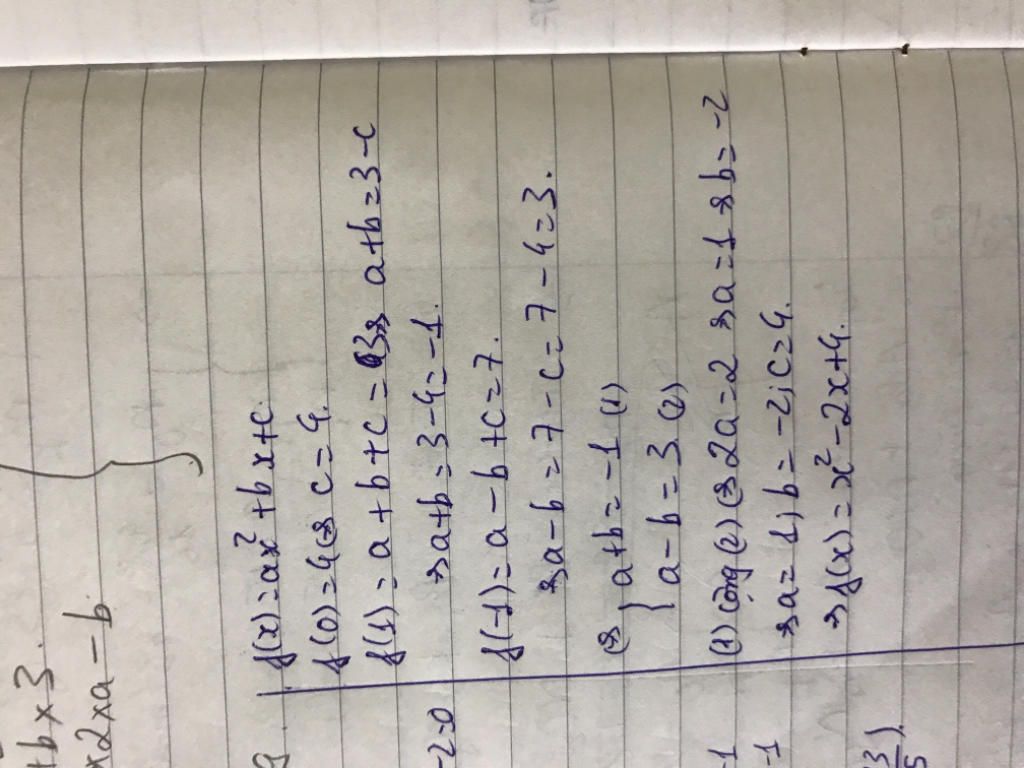 +bx3.
x2xa-b.
g.
f(x)=ax²+bx+c.
f(0)=4⇔c=4.
f(1)=a+b+c=3⇒ a+b=3-c
⇒a+b=3-4=-1.
-2=0
f(-1)=a-b+c=7.
⇒a-b=7-c=7-4=3.
⇔{a+b=-1 (1)
a-b=3 (2)
(1) cộng (2)⇔2a=2⇒a=1⇒b=-2
-1
⇒a=1; b=-2; c=4.
-1
⇒f(x)=x²-2x+4.